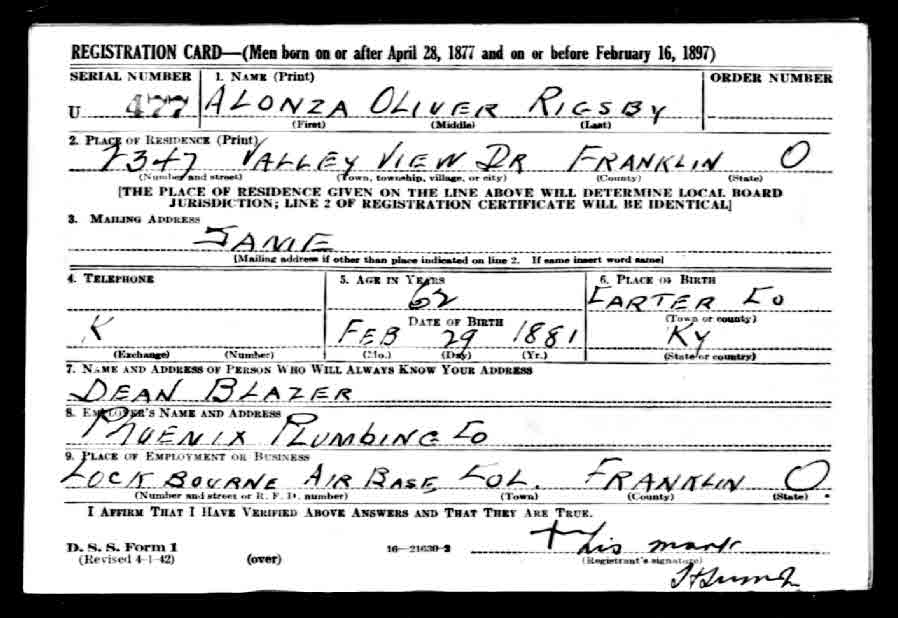 REGISTRATION CARD—(Men born on or after April 28, 1877 and on or before February 16, 1897)
SERIAL NUMBER 1. NAME (Print) ORDER NUMBER
U 477 ALONZA OLIVER RIGSBY
(First) (Middle) (Last)
2. PLACE OF RESIDENCE (Print)
2347 VALLEY VIEW DR FRANKLIN O
(Number and street) (Town, township, village, or city) (County) (State)
[THE PLACE OF RESIDENCE GIVEN ON THE LINE ABOVE WILL DETERMINE LOCAL BOARD
JURISDICTION; LINE 2 OF REGISTRATION CERTIFICATE WILL BE IDENTICAL]
3. MAILING ADDRESS
SAME
[Mailing address if other than place indicated on line 2. If same insert word same]
4. TELEPHONE 5. AGE IN YEARS 6. PLACE OF BIRTH
62 CARTER CO
DATE OF BIRTH (Town or county)
X FEB 29 1881 KY
(Exchange) (Number) (Mo.) (Day) (Yr.) (State or country)
7. NAME AND ADDRESS OF PERSON WHO WILL ALWAYS KNOW YOUR ADDRESS
DEAN BLAZER
8. EMPLOYER'S NAME AND ADDRESS
PHOENIX PLUMBING CO
9. PLACE OF EMPLOYMENT OR BUSINESS
LOCKBOURNE AIR BASE, COL. FRANKLIN O
(Number and street or R. F. D. number) (Town) (County) (State)
I AFFIRM THAT I HAVE VERIFIED ABOVE ANSWERS AND THAT THEY ARE TRUE.
D. S. S. Form 1 16—21630-2 his mark
(Revised 4-1-42) (over) (Registrant's signature)